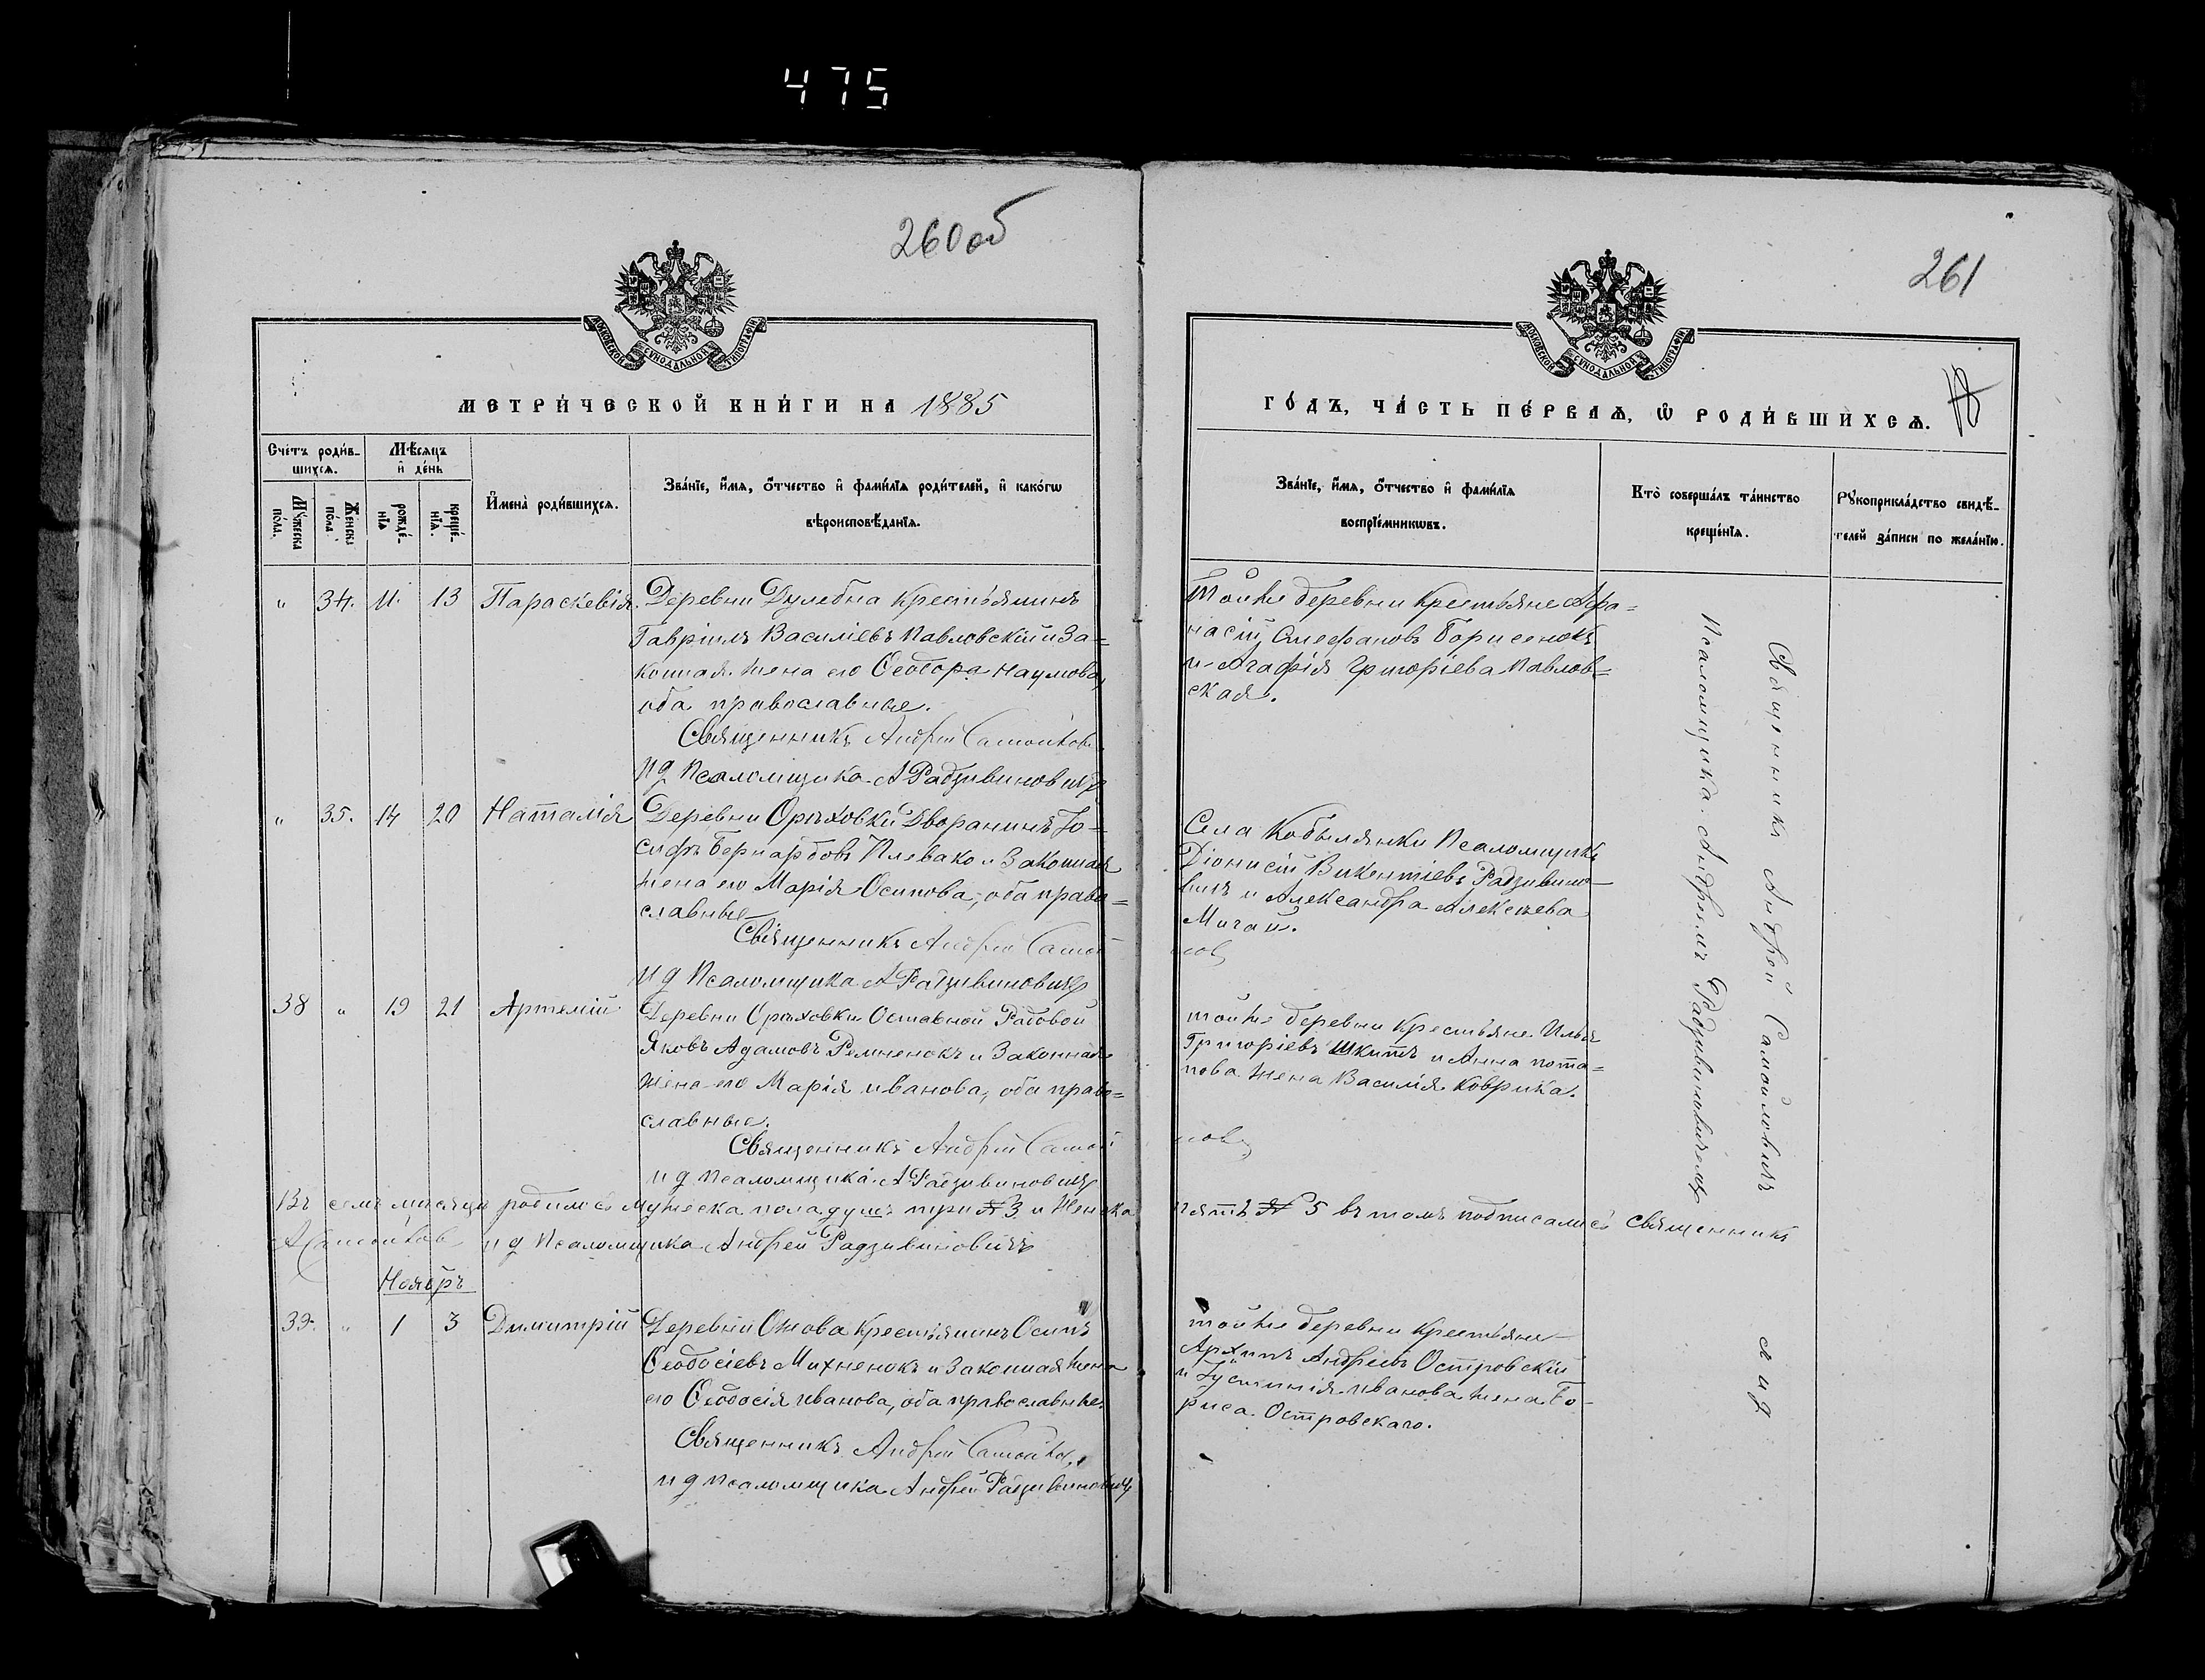 475
260об
МОСКОВСКОЙ СУНОДАЛЬНОЙ ТИПОГРАФІИ
МЕТРИ́ЧЕСКОЙ КНИ́ГИ НА 1885
Сче́тъ роди́в-
шихся.
Мѣ́сяцъ
и҆ де́нь
Мꙋ́жеска по́ла.
Же́нска по́ла.
рожде́-
нїѧ
креще́-
нїѧ.
И҆мена̀ роди́вшихсѧ.
Зва́нїе, и҆́мѧ, ѻ҆́тчество и҆ фами́лїѧ роди́телей, и҆ како́гѡ
вѣроисповѣ́данїѧ.
" 34. 11. 13 Параскевія. Деревни Дулебна крестьянинъ
Гавріилъ Василіевъ Павловскій и за-
конная жена его Ѳеодора Наумова,
оба православные.
Священникъ Андрей Самойлов
И д Псаломщика А Радзивиновичъ
" 35. 14 20 Наталія Деревни Орѣховки Дворянинъ Іо-
сифъ Бернардовъ Плевако и законная
жена его Марія Осипова, оба право-
славные
Священникъ Андрей Самой
И д Псаломщика А Радзивиновичъ
38 " 19 21 Артемій Деревни Орѣховки Отставной Рядовой
Яковъ Адамовъ Ремненокъ и законная
жена его Марія Иванова, оба право-
славные.
Священникъ Андрей Самой
И д псаломщика А Радзивиновичъ
Въ семъ мѣсяцѣ родилось мужеска пола душъ три № 3 и женска
А Самойлов и д Псаломщика Андрей Радзивиновичъ
Ноябрь
39. " 1 3 Димитрій Деревни Ожова крестьянинъ Осипъ
Ѳеодосіевъ Михненокъ и законная жена
его Ѳеодосія Иванова, оба православные.
Священникъ Андрей Самойлов
и д псаломщика Андрей Радзивиновичъ
261
МОСКОВСКОЙ СУНОДАЛЬНОЙ ТИПОГРАФІИ
ГО́ДЪ, ЧА́СТЬ ПЕ́РВАѦ, Ѽ РОДИ́ВШИХСѦ.
Зва́нїе, и҆́мѧ, ѻ҆́тчество и҆ фами́лїѧ
воспрїе́мникѡвъ.
Кто̀ соверша́лъ та́инство
креще́нїѧ.
Рꙋкоприкла́дство свидѣ́-
телей за́писи по жела́нїю.
Тойже деревни крестьяне Афа-
насій Стефановъ Борисенокъ
и Агафія Григоріева Павлов-
ская.
Села Кобылянки Псаломщикъ
Діонисій Викентіевъ Радзивино-
вичъ и Александра Алексѣева
Мигай.
лов
тойже деревни крестьяне Илья
Григоріевъ Шкитъ и Анна Пота-
пова жена Василія Коврика.
лов
пять № 5 въ томъ подписались священникъ
тойже деревни крестьяне
Архипъ Андреевъ Островскій
и Іустинія Иванова жена Бо-
риса Островскаго.
Священникъ Андрей Самойловичъ
Псаломщика Андреемъ Радзивиновичемъ
и д